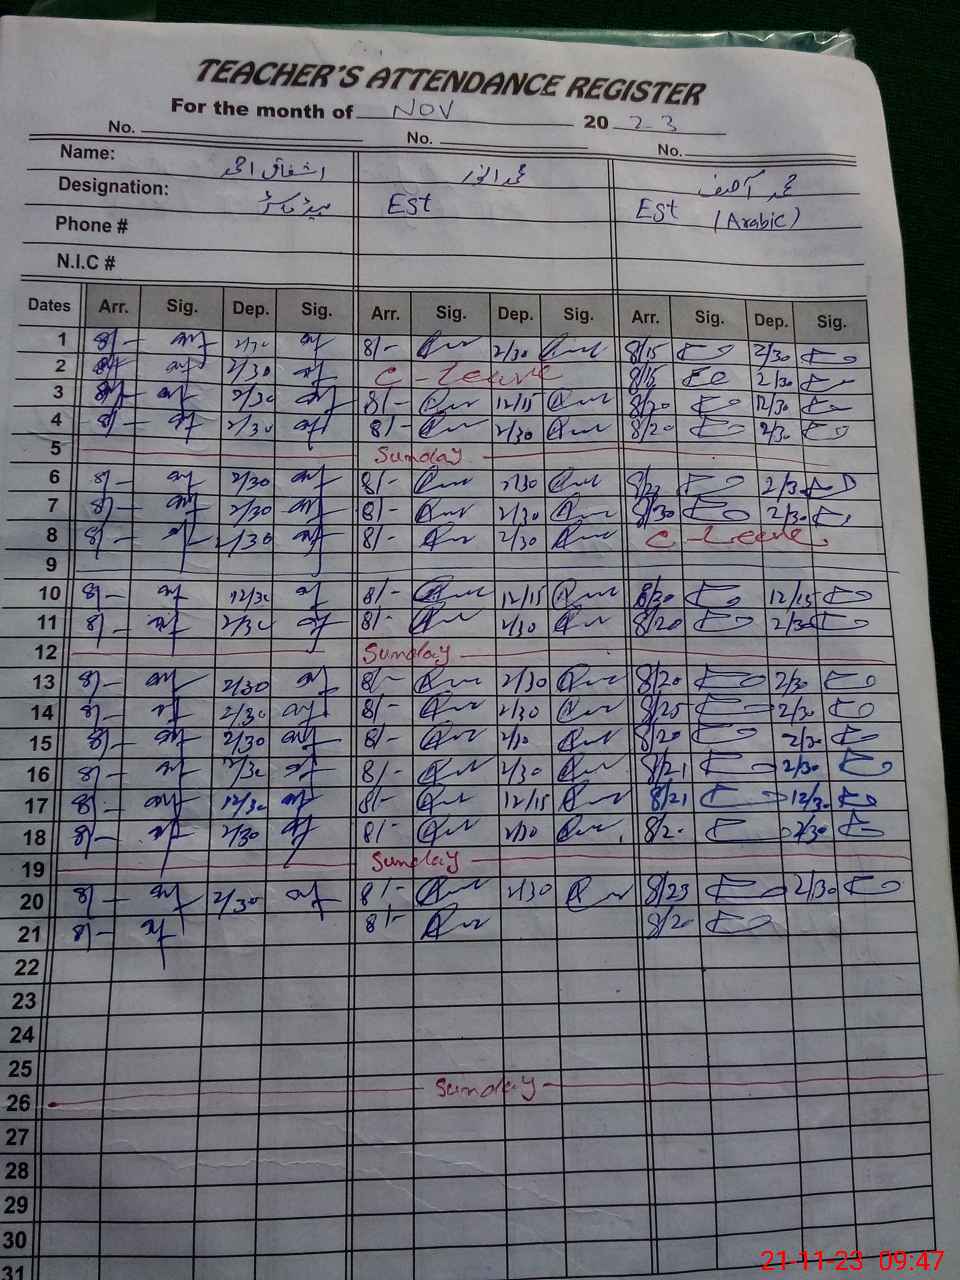 TEACHER'S ATTENDANCE REGISTER
For the month of NOV 2023
No. No. No.
Name: اشفاق احمد محمد انور محمد آصف
Designation: ہیڈ ماسٹر Est Est (Arabic)
Phone #
N.I.C #
Dates Arr. Sig. Dep. Sig. Arr. Sig. Dep. Sig. Arr. Sig. Dep. Sig.
1 8/- 2/30 8/- 2/30 8/15 2/30
2 8/- 2/30 C-Leave 8/15 2/30
3 8/- 2/30 8/- 12/15 8/20 12/30
4 8/- 2/30 8/- 2/30 8/20 2/30
5 Sunday
6 8/- 2/30 8/- 2/30 2/30
7 8/- 2/30 8/- 2/30 8/30 2/30
8 8/- 2/30 8/- 2/30 C-Leave
9
10 8/- 12/30 8/- 12/15 8/20 12/15
11 8/- 2/30 8/- 2/30 8/20 2/30
12 Sunday
13 8/- 2/30 8/- 2/30 8/20 2/30
14 8/- 2/30 8/- 2/30 8/25 2/30
15 8/- 2/30 8/- 2/30 8/20 2/30
16 8/- 2/30 8/- 2/30 8/21 2/30
17 8/- 12/30 8/- 12/15 8/21 12/30
18 8/- 2/30 8/- 2/30 8/20 2/30
19 Sunday
20 8/- 2/30 8/- 2/30 8/23 2/30
21 8/- 8/- 8/20
22
23
24
25
26 Sunday
27
28
29
30
31
21-11-23 09:47